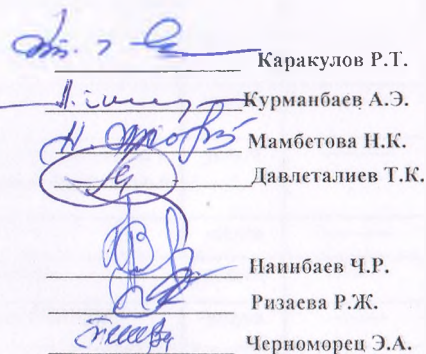 Каракулов Р.Т.
Курманбаев А.Э.
Мамбетова Н.К.
Давлеталиев Т.К.
Наинбаев Ч.Р.
Ризаева Р.Ж.
Черноморец Э.А.